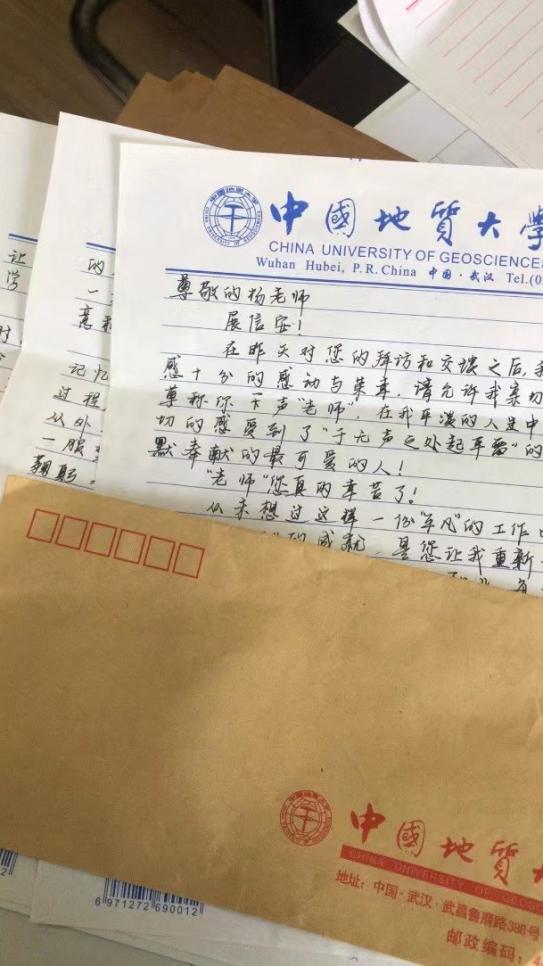 中國地質大學
CHINA UNIVERSITY OF GEOSCIENCES
Wuhan Hubei, P.R.China 中国·武汉 Tel.(0
尊敬的杨老师
展信安！
在昨天对您的拜访和交谈之后,我
感十分的感动与荣幸,请允许我亲切
尊称你一声"老师",在我平淡的人生中
切的感受到了"于无声之处起
默奉献的最可爱的人！
"老师"您真的辛苦了！
从未想过这样一份"平凡"的工作
的成就,是您让我重新
让
学
时,
的
一
亮
记忆
过程
从外
一服
鞠躬,
中國地質
CHINA UNIVERSITY OF GEOS
地址：中国·武汉·武昌鲁磨路388号
邮政编码：4
0012
6 971272 690012